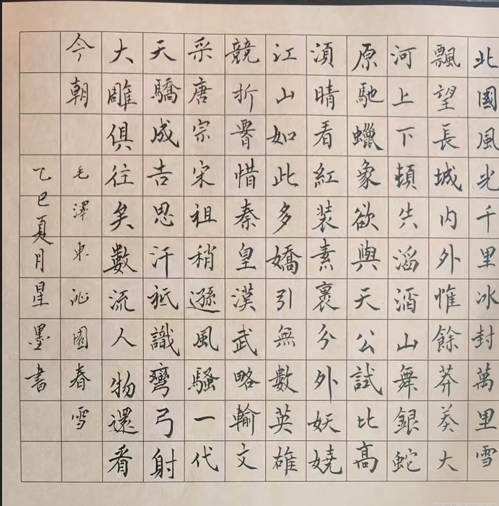 北國風光千里冰封萬里雪
飄望長城內外惟餘莽莽大
河上下頓失滔滔山舞銀蛇
原馳蠟象欲與天公試比高
須晴看紅裝素裹分外妖嬈
江山如此多嬌引無數英雄
競折腰惜秦皇漢武略輸文
采唐宗宋祖稍遜風騷一代
天驕成吉思汗衹識彎弓射
大雕俱往矣數流人物還看
今朝 毛澤東沁園春雪
乙巳夏月星墨書